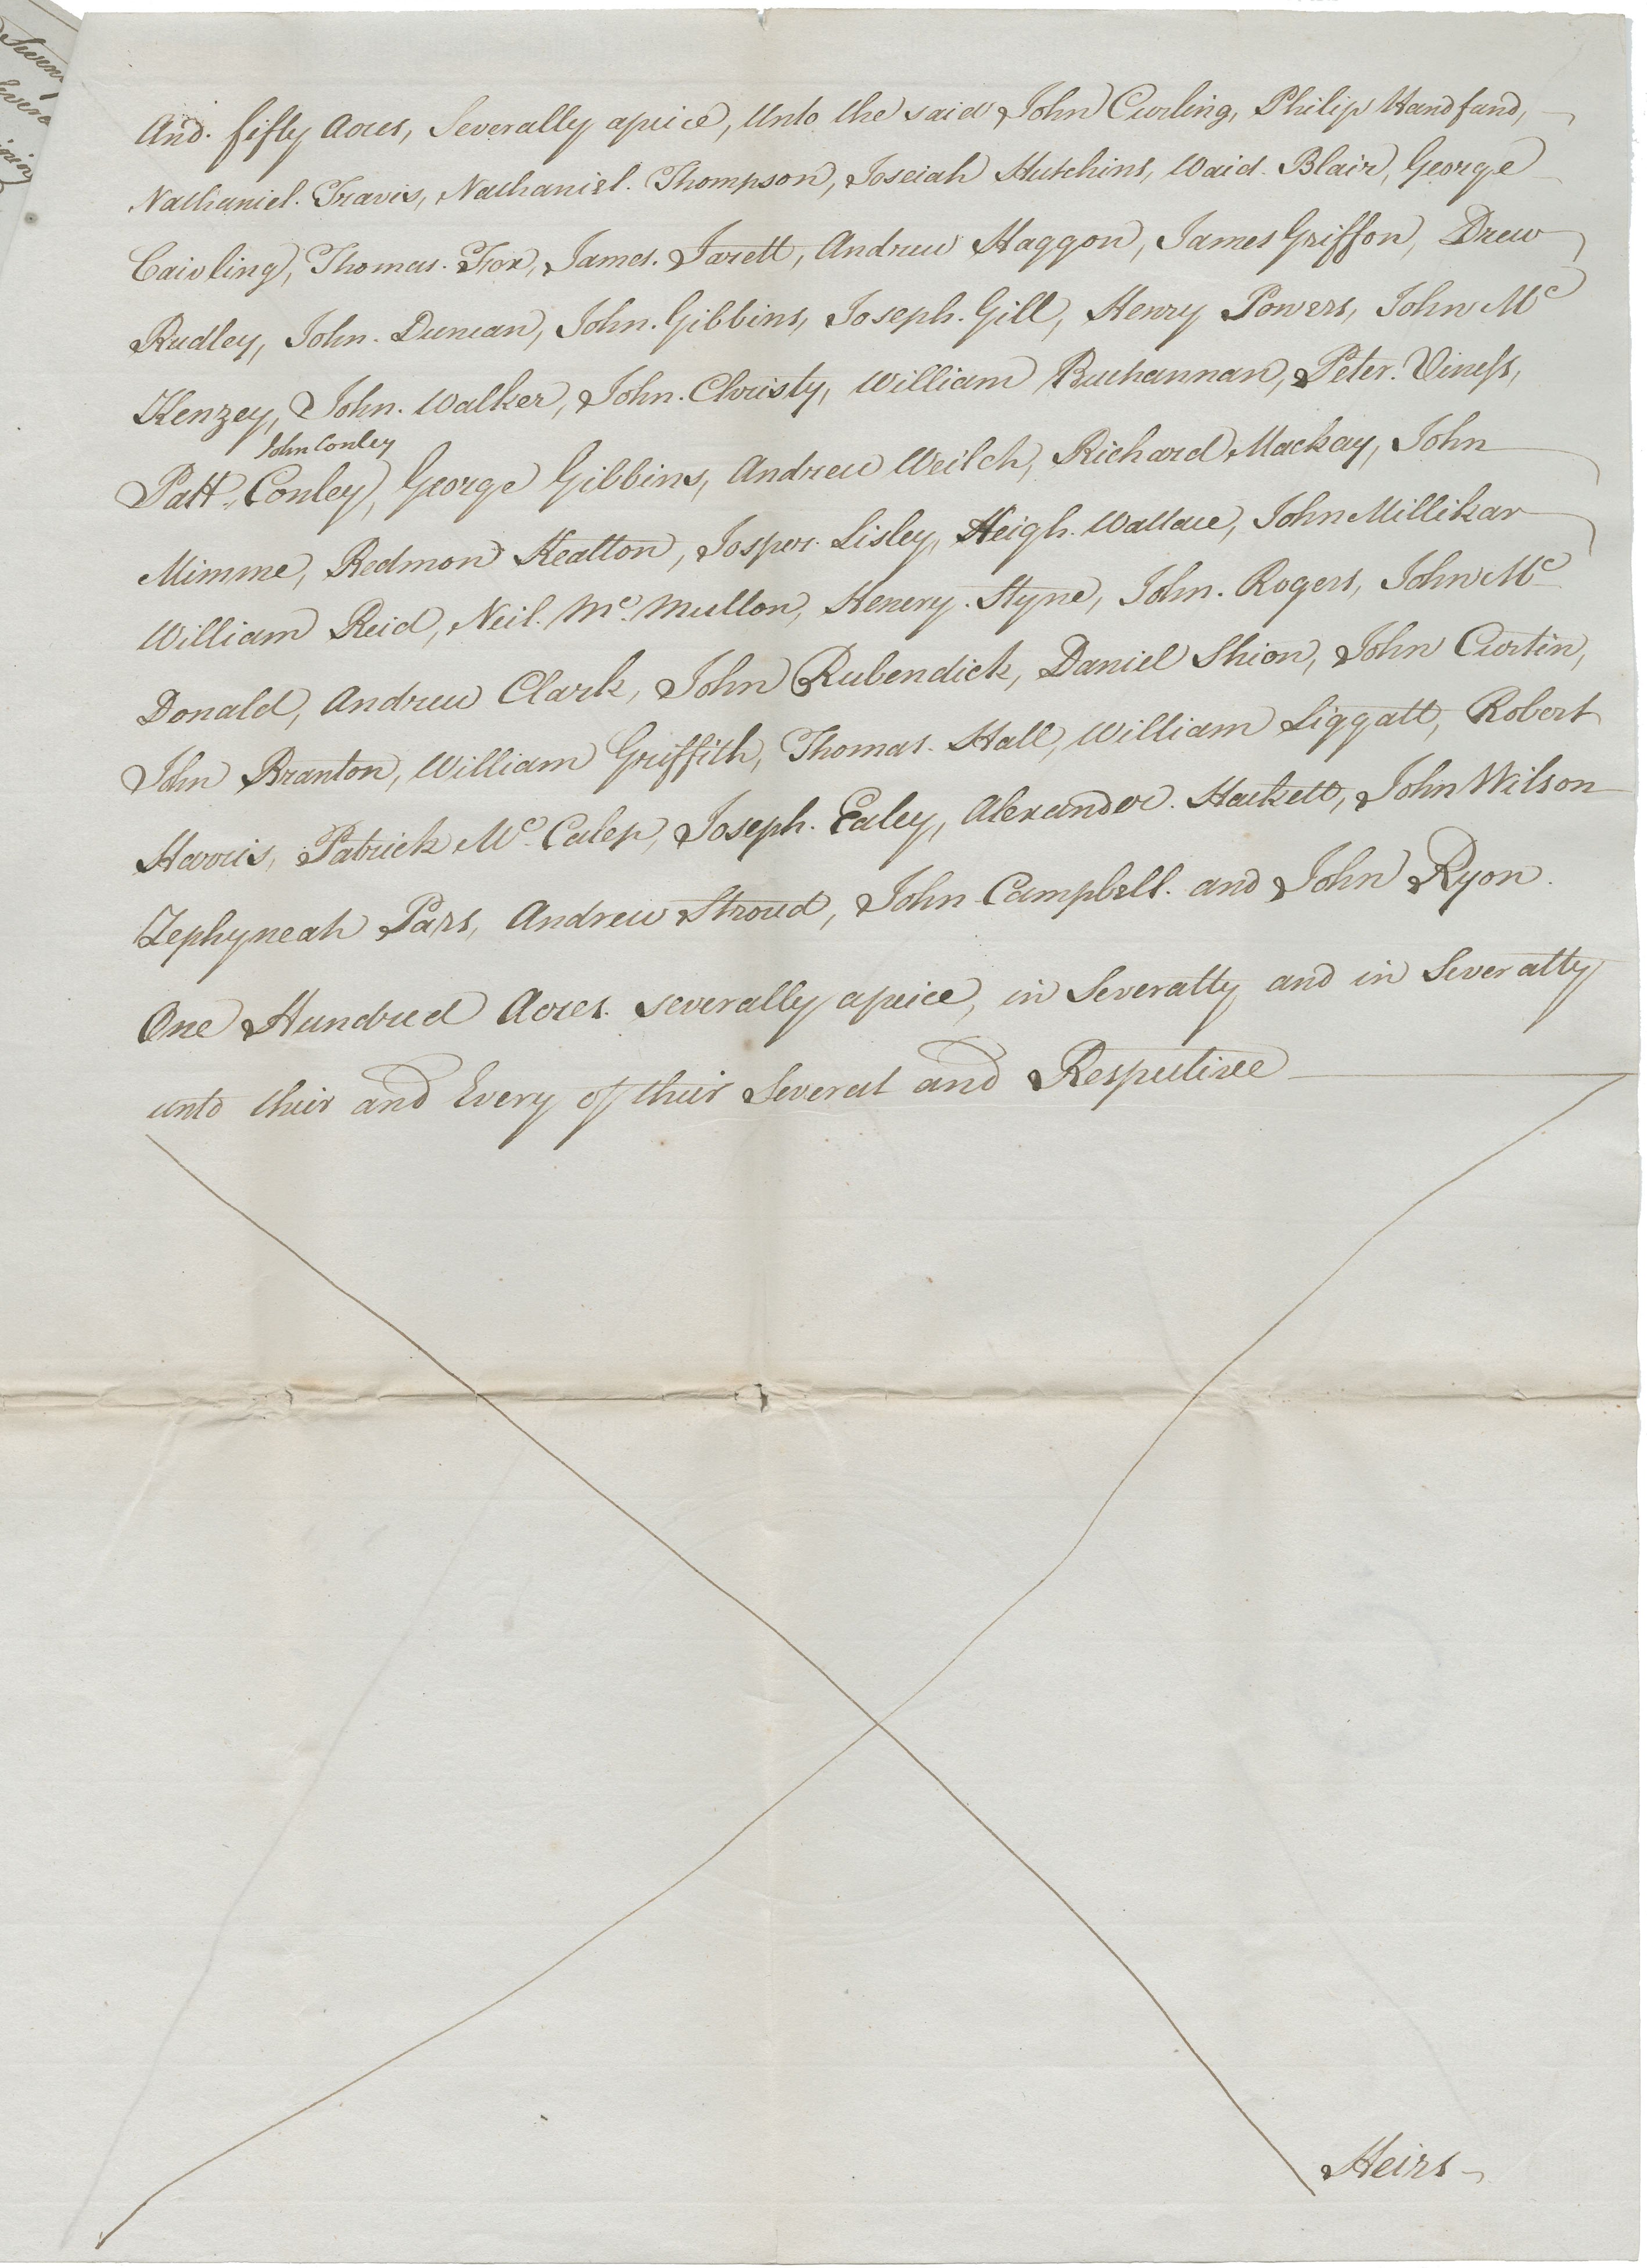 And. fifty Acres, Severally apeice, Unto the said John Curling, Philip Handfand,
Nathaniel. Travis, Nathaniel. Thompson, Joseiah Hutchins, Waid. Blair, George
Cairling, Thomas. Fox, James. Jarett, Andrew Haggon, James Griffon, Drew
Rudley, John. Duncan, John. Gibbins, Joseph. Gill, Henry Powers, John Mc
Kenzey, John. Walker, John. Christy, William Buchannan, Peter. Viness,
John Conley
Patt. Conley, George Gibbins, Andrew Weilch, Richard Mackay, John
Mimme, Redmon Kealton, Josper. Lisley, Heigh. Wallace, John Millikar
William Reid, Neil. Mc. Mullon, Henery. Styne, John. Rogers, John Mc
Donald, Andrew Clark, John Rubendick, Daniel Shion, John Curtin,
John Branton, William Griffith, Thomas. Hall, William Liggatt, Robert
Harris, Patrick Mc. Calep, Joseph. Ealey, Alexander. Hackett, John Wilson
Zephyneah Pars, Andrew Stroud, John Campbell. and John Ryon.
One Hundred Acres. severally apeice, in Severalty and in Severalty
unto their and Every of their Several and Respective
Heirs